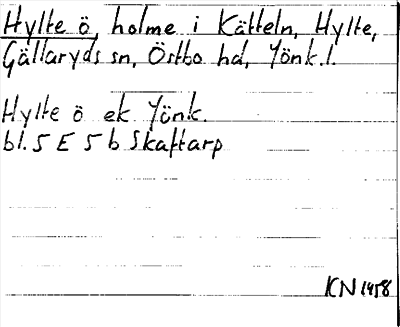 Hylte ö, holme i Kätteln, Hylte,
Gällaryds sn, Östbo hd, Jönk. l.
Hylte ö ek Jönk.
bl. 5 E 5 b Skaftarp
KN 1958